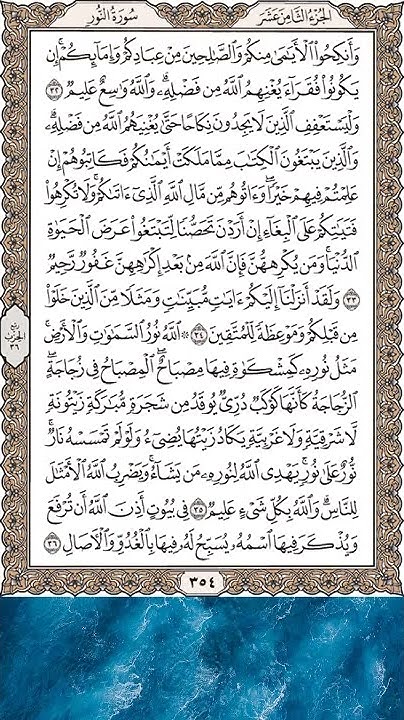 الجزء الثامن عشر
سورة النور
وَأَنكِحُوا۟ ٱلْأَيَـٰمَىٰ مِنكُمْ وَٱلصَّـٰلِحِينَ مِنْ عِبَادِكُمْ وَإِمَآئِكُمْ ۚ إِن
يَكُونُوا۟ فُقَرَآءَ يُغْنِهِمُ ٱللَّهُ مِن فَضْلِهِۦ ۗ وَٱللَّهُ وَٰسِعٌ عَلِيمٌ ٣٢
وَلْيَسْتَعْفِفِ ٱلَّذِينَ لَا يَجِدُونَ نِكَاحًا حَتَّىٰ يُغْنِيَهُمُ ٱللَّهُ مِن فَضْلِهِۦ ۗ
وَٱلَّذِينَ يَبْتَغُونَ ٱلْكِتَـٰبَ مِمَّا مَلَكَتْ أَيْمَـٰنُكُمْ فَكَاتِبُوهُمْ إِنْ
عَلِمْتُمْ فِيهِمْ خَيْرًا ۖ وَءَاتُوهُم مِّن مَّالِ ٱللَّهِ ٱلَّذِىٓ ءَاتَىٰكُمْ ۚ وَلَا تُكْرِهُوا۟
فَتَيَـٰتِكُمْ عَلَى ٱلْبِغَآءِ إِنْ أَرَدْنَ تَحَصُّنًا لِّتَبْتَغُوا۟ عَرَضَ ٱلْحَيَوٰةِ
ٱلدُّنْيَا ۚ وَمَن يُكْرِههُّنَّ فَإِنَّ ٱللَّهَ مِنۢ بَعْدِ إِكْرَٰهِهِنَّ غَفُورٌ رَّحِيمٌ
٣٣ وَلَقَدْ أَنزَلْنَآ إِلَيْكُمْ ءَايَـٰتٍ مُّبَيِّنَـٰتٍ وَمَثَلًا مِّنَ ٱلَّذِينَ خَلَوْا۟
مِن قَبْلِكُمْ وَمَوْعِظَةً لِّلْمُتَّقِينَ ٣٤ ۞ ٱللَّهُ نُورُ ٱلسَّمَـٰوَٰتِ وَٱلْأَرْضِ ۚ
مَثَلُ نُورِهِۦ كَمِشْكَوٰةٍ فِيهَا مِصْبَاحٌ ۖ ٱلْمِصْبَاحُ فِى زُجَاجَةٍ ۖ
ٱلزُّجَاجَةُ كَأَنَّهَا كَوْكَبٌ دُرِّىٌّ يُوقَدُ مِن شَجَرَةٍ مُّبَـٰرَكَةٍ زَيْتُونَةٍ
لَّا شَرْقِيَّةٍ وَلَا غَرْبِيَّةٍ يَكَادُ زَيْتُهَا يُضِىٓءُ وَلَوْ لَمْ تَمْسَسْهُ نَارٌ ۚ
نُّورٌ عَلَىٰ نُورٍ ۗ يَهْدِى ٱللَّهُ لِنُورِهِۦ مَن يَشَآءُ ۚ وَيَضْرِبُ ٱللَّهُ ٱلْأَمْثَـٰلَ
لِلنَّاسِ ۗ وَٱللَّهُ بِكُلِّ شَىْءٍ عَلِيمٌ ٣٥ فِى بُيُوتٍ أَذِنَ ٱللَّهُ أَن تُرْفَعَ
وَيُذْكَرَ فِيهَا ٱسْمُهُۥ يُسَبِّحُ لَهُۥ فِيهَا بِٱلْغُدُوِّ وَٱلْـَٔاصَالِ ٣٦
ربع
الحزب
٣٦
٣٥٤